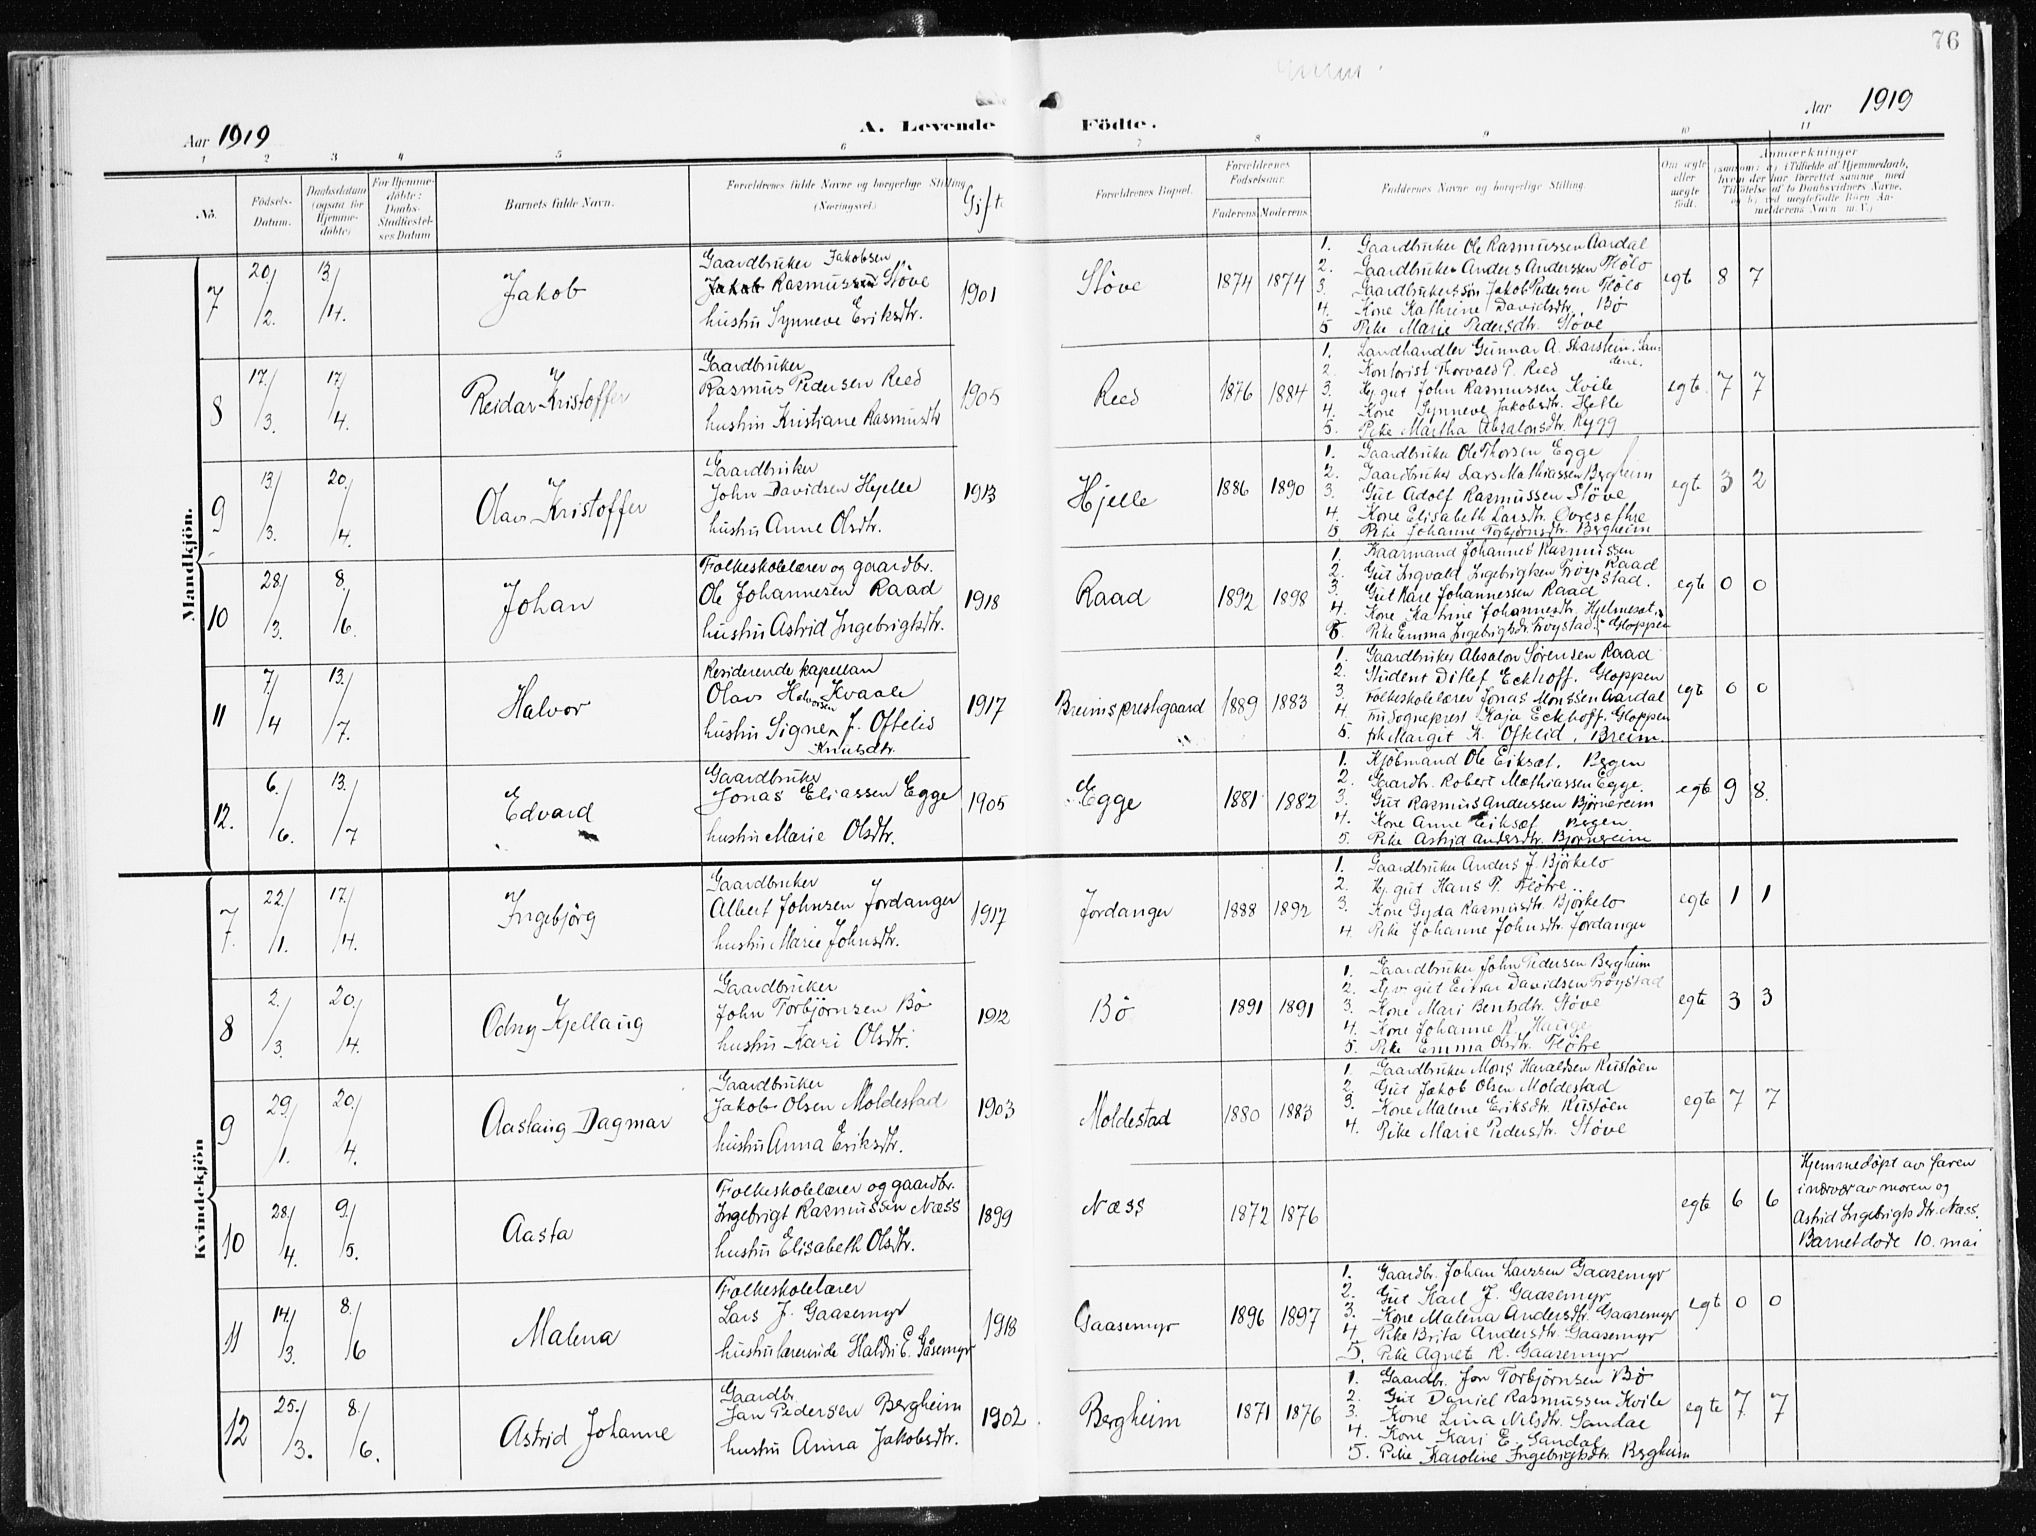 76
Aar 1919
A. Levende Födte.
Aar 1919
1 2 3 4 5 6 7 8 9 10 11
No.
Fødsels-Datum.
Daabsdatum (ogsaa for Hjemme-døbte)
For Hjemme-døbte: Daabs-Stadfæstel-ses Datum
Barnets fulde Navn.
Forældrenes fulde Navne og borgerlige Stilling (Næringsvei)
Gift
Forældrenes Bopæl.
Forældrenes Fødselsaar.
Faderens Moderens
Faddernes Navne og borgerlige Stilling.
Om ægte eller uægte født.
Anmærkninger
Mandkjön.
7
20/2.
13/4.
Jakob
Gaardbruker Jakobsen
Jakob Rasmussen Støve
hustru Synneve Eriksdtr.
1901
Støve
1874 1874
1. Gaardbruker Ole Rasmussen Aardal
2. Gaardbruker Anders Anderssen Flølo
3. Gaardbrukerssøn Jakob Pedersen Flølo
4. Kone Kathrine Davidsdtr. Bø
5 Pike Marie Pedersdtr. Støve
egte 8 7
8
17./3.
17/4.
Reidar Kristoffer
Gaardbruker
Rasmus Pedersen Reed
hustru Kristiane Rasmusdtr
1905
Reed
1876 1884
1. Landhandler Gunnar A. Skarstein. Sandene.
2. Kontorist Thorvald P. Reed
3. Hj gut John Rasmussen Kvile
4. Kone Synneve Jakobsdtr. Hjelle
5. Pike Martha Absalonsdtr. Rygg
egte. 7 7
9
13/3.
20./4.
Olav Kristoffer
Gaardbruker
John Davidsen Hjelle
hustru Anne Olsdtr.
1913
Hjelle
1886 1890
1. Gaardbruker Ole Thorsen Egge
2. Gaardbruker Lars Mathiassen Bergheim
3. Gut Adolf Rasmussen Støve
4. Kone Elisabeth Larsdtr. Øvresæthre
5. Pike Johanne Torbjørnsdtr. Bergheim
egte 3 2
10
28./3.
8./6.
Johan
Folkeskolelærer og gaardbr.
Ole Johannesen Raad
hustru Astrid Ingebrigtsdtr.
1918
Raad
1892 1898
1. Kaarmand Johannes Rasmussen Raad
2. Gut Ingvald Ingebrigtsen Frøystad.
3. Gut Kåre Johannessen Raad
4. Kone Katrine Johannesdtr. Hjelmeset
5. Pike Emma Ingebrigtsdr. Frøystad, Gloppen
egte 0 0
11
7/4
13./7.
Halvor
Residerende kapellan
Olav Halvorsen Kvaale
hustru Signe J. Oftelid
Knutsdtr.
1917
Breims prestegaard
1889 1883
1. Gaardbruker Absalon Sørensen Raad
2. Student Ditlef Eckhoff. Gloppen
3. Folkeskolelærer Jonas Monssen Aardal
4. Fru Sogneprest Kaja Eckhoff. Gloppen
5. frk Margit K. Oftelid, Breim.
egt 0 0
12.
6./6.
13./7
Edvard
Gaardbruker
Jonas Eliassen Egge
hustru Marie Olsdtr.
1905
Egge
1881 1882
1. Kjøbmand Ole Eikset. Bergen
2. Gaardbr. Robert Mathiassen Egge.
3. Gut Rasmus Anderssen Bjørnereim
4. Kone Anne Eikset Bergen
5. Pike Astrid Andersdtr. Bjørnereim
egte 9 8.
Kvindekjön
7
22./1.
17./4.
Ingebjørg
Gaardbruker
Albert Johnsen Jordanger
hustru Marie Johnsdtr.
1917
Jordanger
1888 1892
1. Gaardbruker Anders J. Bjørkelo
2. Hj. gut Hans T. Fløtre
3. Kone Gyda Rasmusdtr. Bjørkelo
4. Pike Johanne Johnsdtr. Jordanger
egte 1 1
8
2./3.
20./4.
Odny Kjellaug
Gaardbruker
John Torbjørnsen Bø
hustru Kari Olsdtr.
1912
Bø
1891 1891
1. Gaardbruker John Pedersen Bergheim
2. gut Einar Davidsen Frøystad
3. Kone Mari Bentsdtr. Støve
4. Kone Johanne R. Hauge
5. Pike Emma Olsdtr. Fløtre
egte 3 3
9
29./1.
20./4.
Aaslaug Dagmar
Gaardbruker
Jakob Olsen Moldestad
hustru Anna Eriksdtr.
1903
Moldestad
1880 1883
1. Gaardbruker Mons Haraldsen Rustøen
2. Gut Jakob Olsen Moldestad
3. Kone Malene Eriksdtr. Rustøen
4. Pike Marie Pedersdtr. Støve
egte 7 7
10
28./4.
9./5.
Aasta
Folkeskolelærer og gaardbr.
Ingebrigt Rasmussen Næss
hustru Elisabeth Olsdtr.
1899
Næss
1872 1876
egte 6 6
Hjemmedøpt av faren
i nærvær av moren og
Astrid Ingebrigtsdtr. Næss.
Barnet døde 10. mai
11
14./3.
8./6
Malena
Folkeskolelærer
Lars J. Gaasemyr
hustru lærerinde Haldis E. Gåsemyr
1918
Gaasemyr
1896 1897
1. Gaardbr. Johan Larssen Gaasemyr
2. Gut Karl J. Gaasemyr
3. Kone Malena Andersdtr. Gaasemyr
4. Pike Brita Andersdtr. Gaasemyr
5. Pike Agnete R. Gaasemyr
egte 0 0
12
25./3.
8./6.
Astrid Johanne
Gaardbr.
Jan Pedersen Bergheim
hustru Anna Jakobsdtr.
1902.
Bergheim
1871 1876
1. Gaardbr. Jon Torbjørnsen Bø
2. Gut Daniel Rasmussen Kvile
3. Kone Lina Nilsdtr. Sandal
4. Kone Kari E. Sandal
5. Pike Karoline Ingebrigtsdtr. Bergheim
egte 7. 7